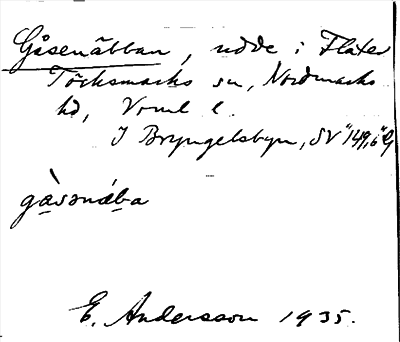 Gåsenäbban, udde i Flaten
Töcksmarks sn, Nordmarks
hd, Vrml l.
I Bryngelsbyn, SV "149,6"
gàsənǽba
E. Andersson 1935.